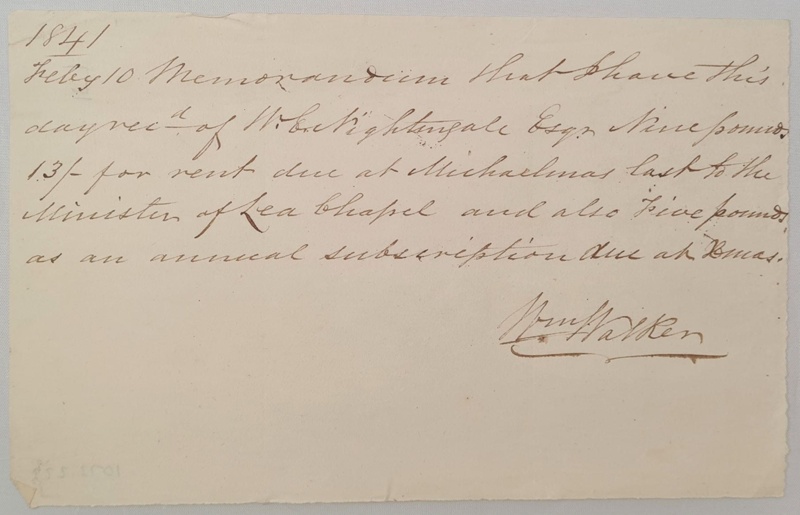 1841
Feby 10 Memorandum that I have this
day recd of W. E. Nightingale Esqr Nine pounds
13/- for rent due at Michaelmas last to the
Minister of Lea Chapel and also Five pounds
as an annual subscription due at Xmas.
Wm Walker